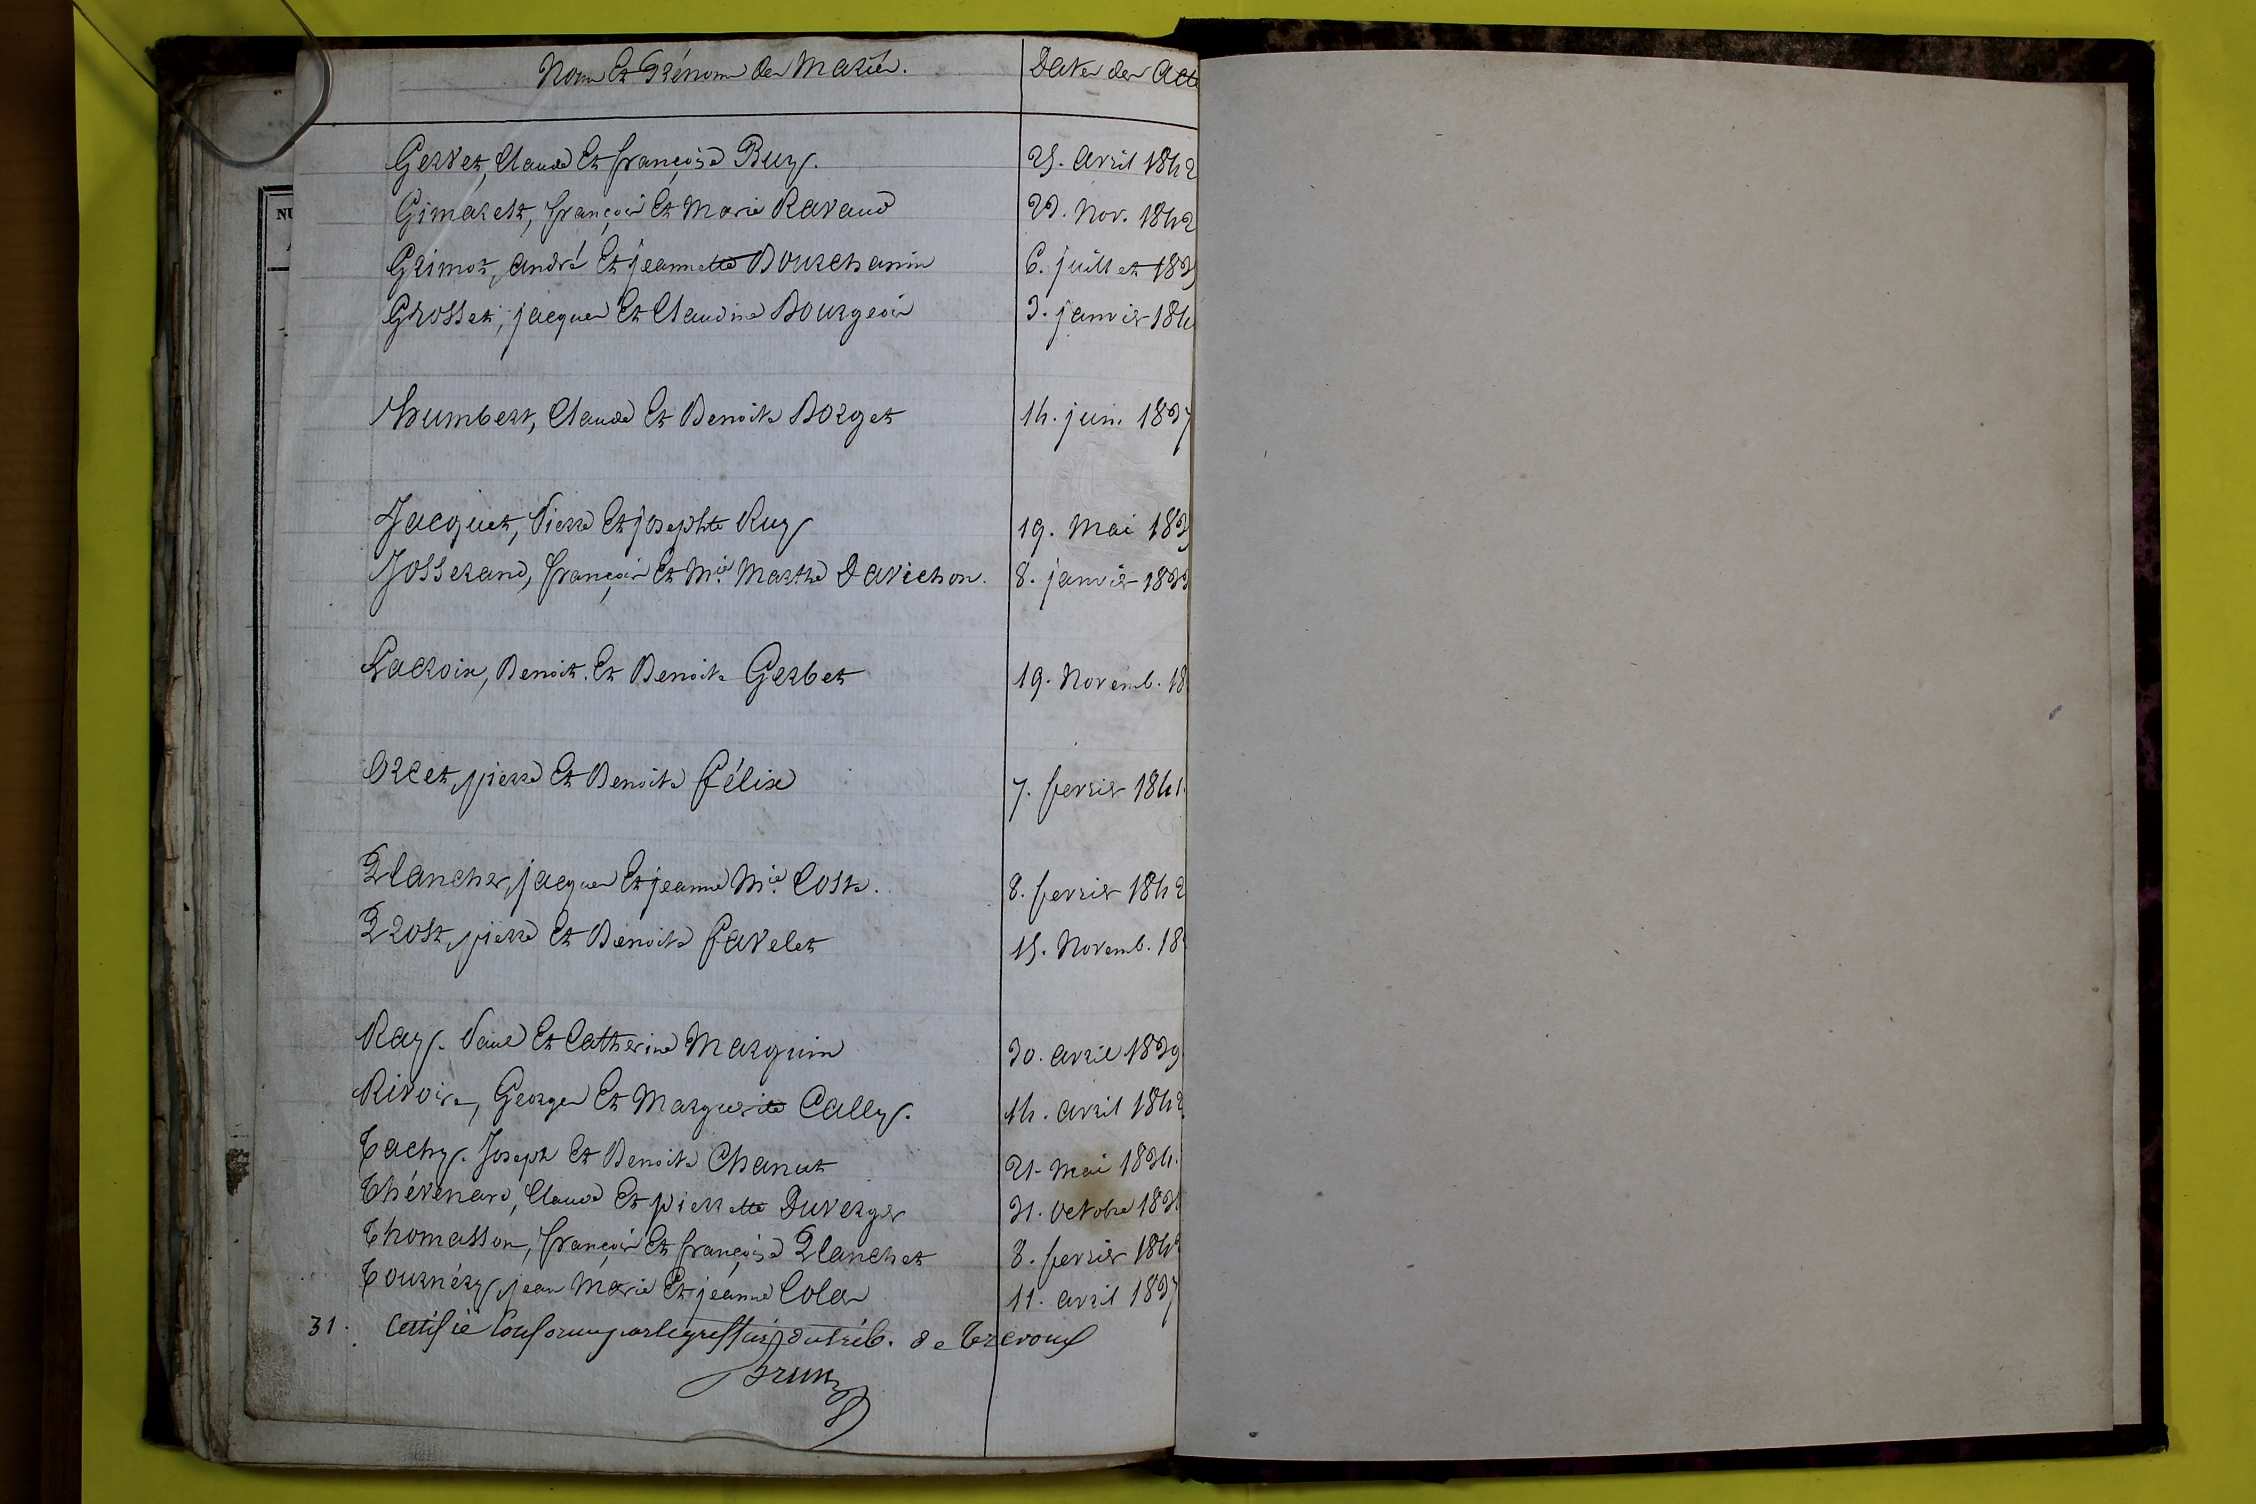 Noms Et Prénoms des Mariés. Dates des Act
Gervet, Claude Et françoise Buy. 25. avril 1842
Gimaret, françois Et Marie Ravaud 23. Nov. 1842
Grimot, andré Et jeannette Bourchanin 6. juillet 183
Grosset, jacques Et Claudine Bourgeois 3. janvier 184
NU
humbert, Claude Et Benoite Borget 14. juin 1837
Jacquet, Pierre Et josephte Ruy 19. Mai 183
Josserand, françois Et Mie Marthe Davichon. 8. janvier 183
Lacroix, Benoit. Et Benoite Gerbet 19. Novemb. 18
Orcet, pierre Et Benoite félix 7. fevrier 1841.
Plancher, jacques Et jeanne Mie Coste. 8. fevrier 1842
Prost, pierre Et Benoite favelet 15. Novemb. 18
Ray. Paul Et Catherine Marguin 30. avril 1839
Rivoire, Georges Et Marguerite Cally. 14. avril 1842
Tachy. Joseph Et Benoite Chanut 21. Mai 1834.
Thévenard, Claude Et pierrette Duverger 31. octobre 183
Thomasson, françois Et françoise Planchet 8. fevrier 184
Tournéry, jean Marie Et jeanne Colas 11. avril 1837
31. Certifié Conforme par le greffier du trib. de Trevoux
Brun